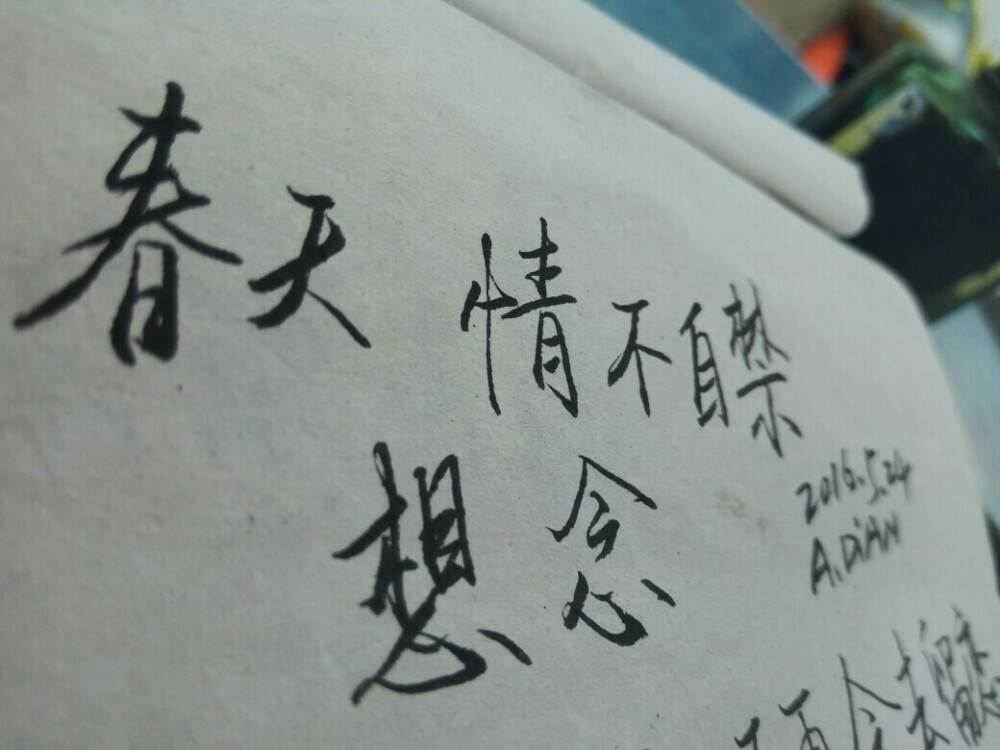 春天情不自禁
想念
2016.5.24
A.DiAN